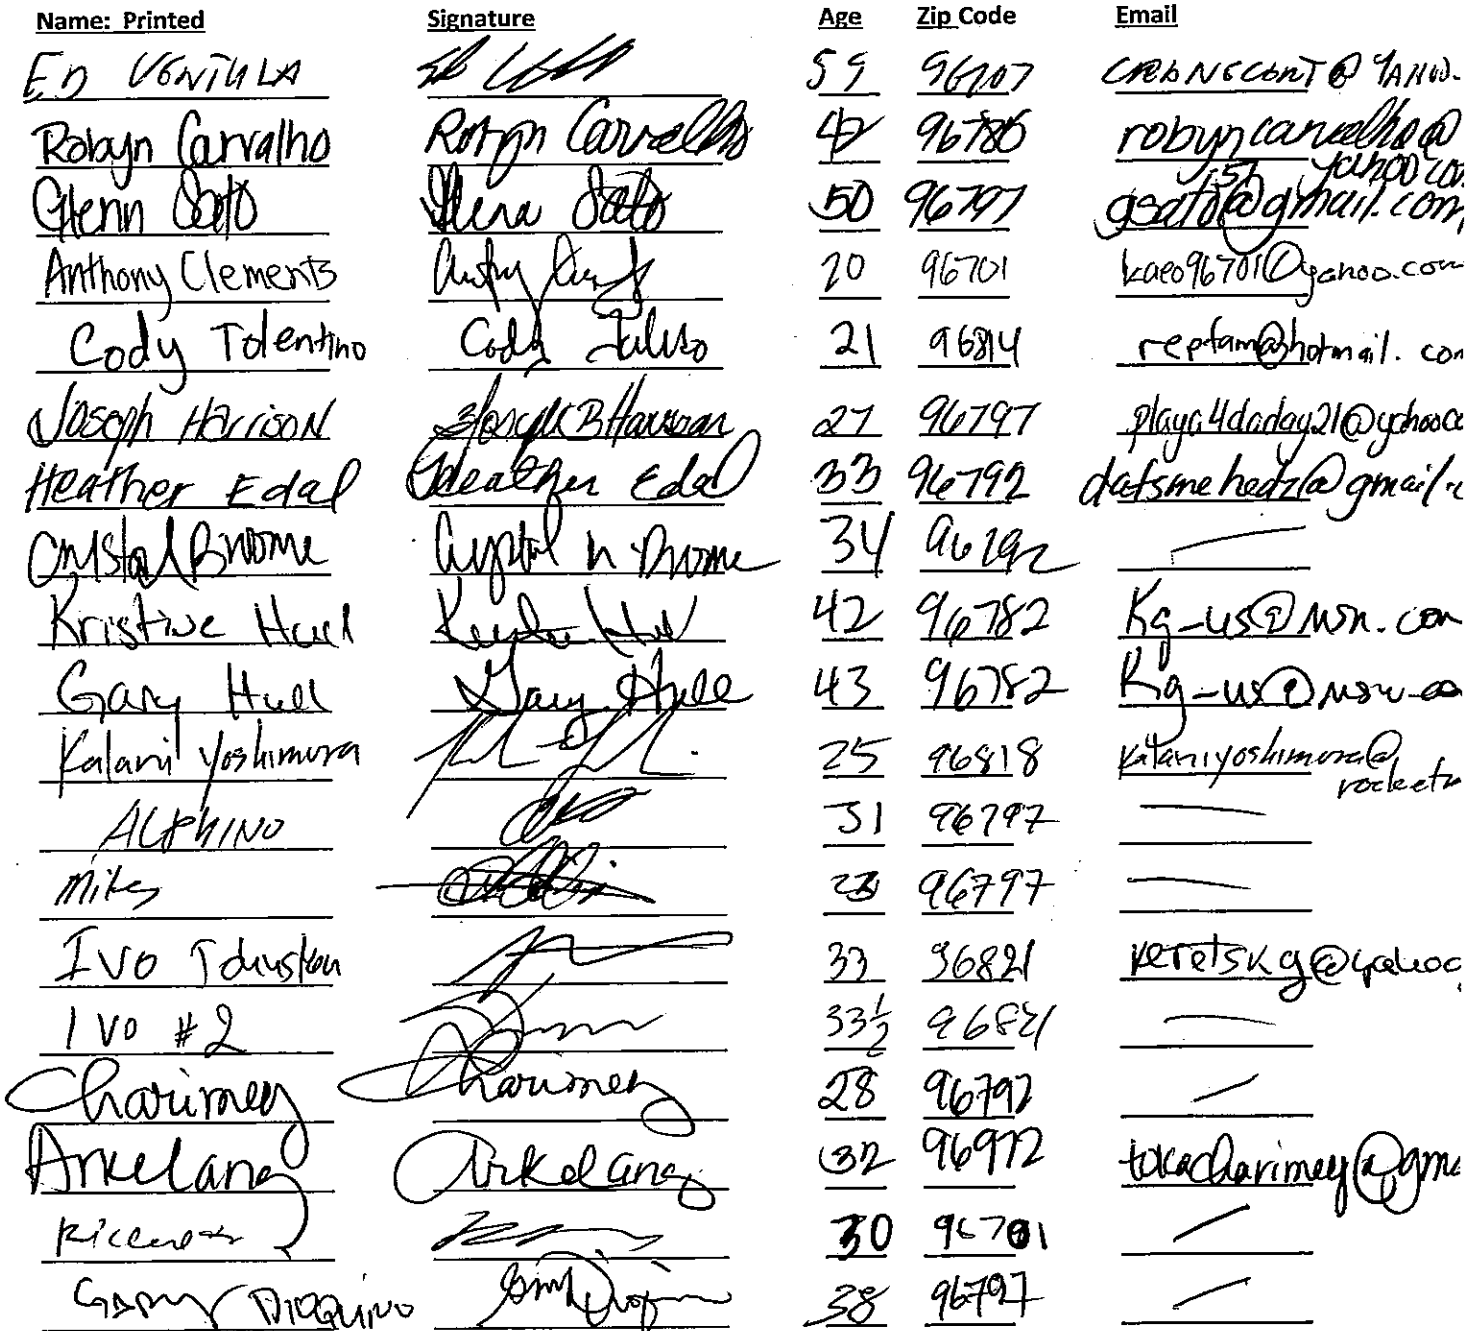 Name: Printed Signature Age Zip Code Email
ED VENTULA 59 96707 @YAHOO.
Robyn Carvalho Robyn Carvalho 42 96786 robyncarvalho@
yahoo.com
Glenn Sato Glenn Sato 50 96797 gsato57@gmail.com
Anthony Clements 20 96701 kaeo96701@yahoo.com
Cody Tolentino Cody 21 96814 repfam@hotmail.com
Joseph Harrison Joseph B Harrison 27 96797 playa4daday21@yahooco
Heather Edal Heather Edal 33 96792 datsmehedz@gmail.c
Crystal Broome Crystal n Broome 34 96792 —
Kristine Hull 42 96782 Kg-us@msn.com
Gary Hull Gary Hull 43 96782 Kg-us@msn.co
Kalani Yoshimura 25 96818 kalaniyoshimura@
rocketm
ALPHINO 31 96797 —
Mikey 23 96797 —
Ivo 33 96821 keretskg@yahoo
IVO #2 33½ 96821 —
Charimey Charimey 28 96792 —
Arkelang Arkelang 32 96972 tokacharimey@gma
30 96701 —
GARY DIOQUINO 38 96797 —